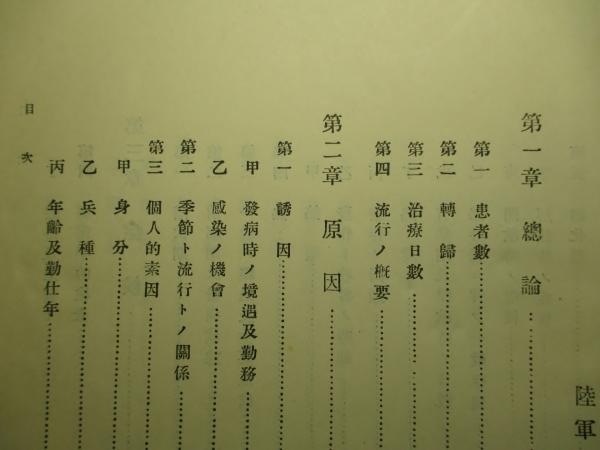 陸軍
第一章 總論
第一 患者數
第二 轉歸
第三 治療日數
第四 流行ノ概要
第二章 原因
第一 誘因
甲 發病時ノ境遇及勤務
乙 感染ノ機會
第二 季節ト流行トノ關係
第三 個人的素因
甲 身分
乙 兵種
丙 年齡及勤仕年
目次